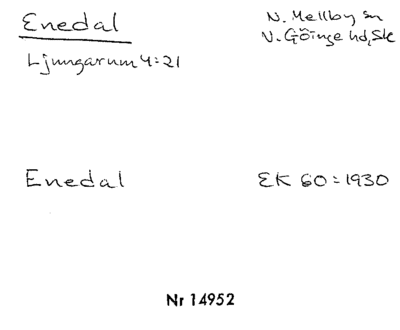 Enedal
N. Mellby sn
V. Göinge hd, Sk
Ljungarum 4:21
Enedal
EK 60 = 1930
Nr 14952